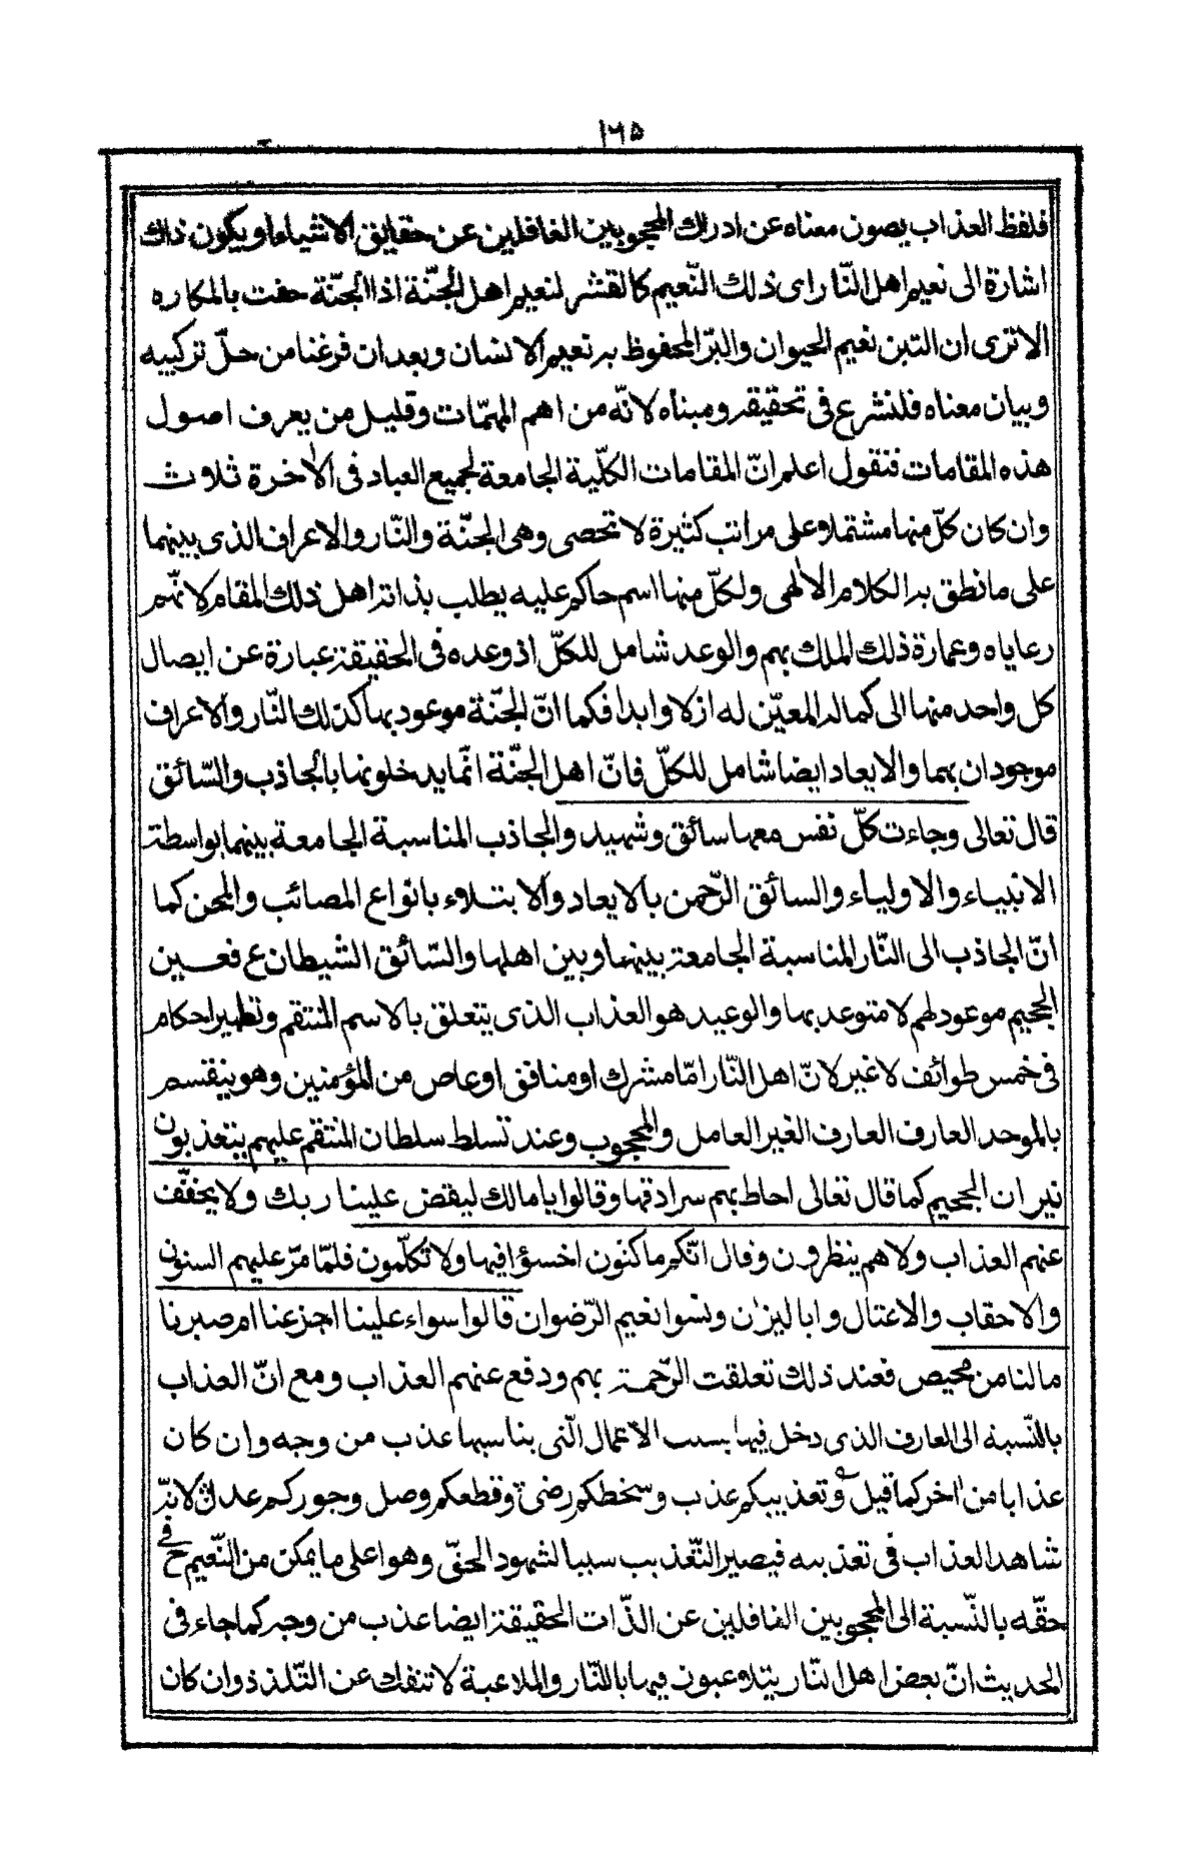 ١٦٥
فلفظ العذاب يصون معناه عن ادراك المحجوبين الغافلين عن حقايق الاشياء او يكون ذلك
اشارة الى نعيم اهل النّار اى ذلك النّعيم كالقشر لنعيم اهل الجنّة اذ الجنّة حفت بالمكاره
الا ترى ان التبن نعيم الحيوان والبرّ المحفوظ به نعيم الانسان وبعد ان فرغنا من حلّ تركيبه
وبيان معناه فلنشرع فى تحقيقه ومبناه لانّه من اهم المهمّات وقليل من يعرف اصول
هذه المقامات فنقول اعلم انّ المقامات الكلّية الجامعة لجميع العباد فى الاخرة ثلاث
وان كان كلّ منها مشتملا وعلى مراتب كثيرة لا تحصى وهى الجنّة والنّار والاعراف الذى بينهما
على ما نطق به الكلام الالهى ولكلّ منها اسم حاكم عليه يطلب بذاته اهل ذلك المقام لانّهم
رعاياه وعمارة ذلك الملك بهم والوعد شامل للكلّ اذ وعده فى الحقيقة عبارة عن ايصال
كل واحد منها الى كماله المعيّن له ازلا وابدا فكما انّ الجنّة موعود بها كذلك النّار والاعراف
موجودان بهما والايعاد ايضا شامل للكلّ فانّ اهل الجنّة انّما يدخلونها بالجاذب والسّائق
قال تعالى وجاءت كلّ نفس معها سائق وشهيد والجاذب المناسبة الجامعة بينهما بواسطة
الانبياء والاولياء والسائق الرّحمن بالايعاد والابتلاء بانواع المصائب والمحن كما
انّ الجاذب الى النّار المناسبة الجامعة بينهما وبين اهلها والسّائق الشيطان ع فعين
الجحيم موعود لهم لا متوعد بها والوعيد هو العذاب الذى يتعلق بالاسم المنتقم وتظهر احكام
فى خمس طوائف لا غير لانّ اهل النّار امّا مشرك او منافق او عاص من المؤمنين وهو ينقسم
بالموحد العارف العارف الغير العامل والمحجوب وعند تسلط سلطان المنتقم عليهم يتعذبون
نيران الجحيم كما قال تعالى احاط بهم سرادقها وقالوا يا مالك ليقض علينا ربك ولا يخفّف
عنهم العذاب ولا هم ينظرون وقال انّكم ماكثون اخسؤا فيها ولا تكلّمون فلمّا مرّ عليهم السنون
والاحقاب والاعتال وابا ليزن ونسوا نعيم الرّضوان قالوا سواء علينا اجزعنا ام صبرنا
مالنا من محيص فعند ذلك تعلقت الرّحمة بهم ودفع عنهم العذاب ومع انّ العذاب
بالنّسبة الى العارف الذى دخل فيها بسبب الاعمال الّتى بناسبها عذب من وجه وان كان
عذابا من اخر كما قيل وتعذيبكم عذب وسخطكم رضى وقطعكم وصل وجوركم عدل لانّه
شاهد العذاب فى تعذيبه فيصير التّعذيب سببا لشهود الحقّ وهو اعلى ما يمكن من النّعيم ح فى
حقّه بالنّسبة الى المحجوبين الغافلين عن الذّات الحقيقة ايضا عذب من وجه كما جاء فى
الحديث انّ بعض اهل النّار يتلاعبون فيها بالنّار والملاعبة لا تنفك عن التّلذذ وان كان